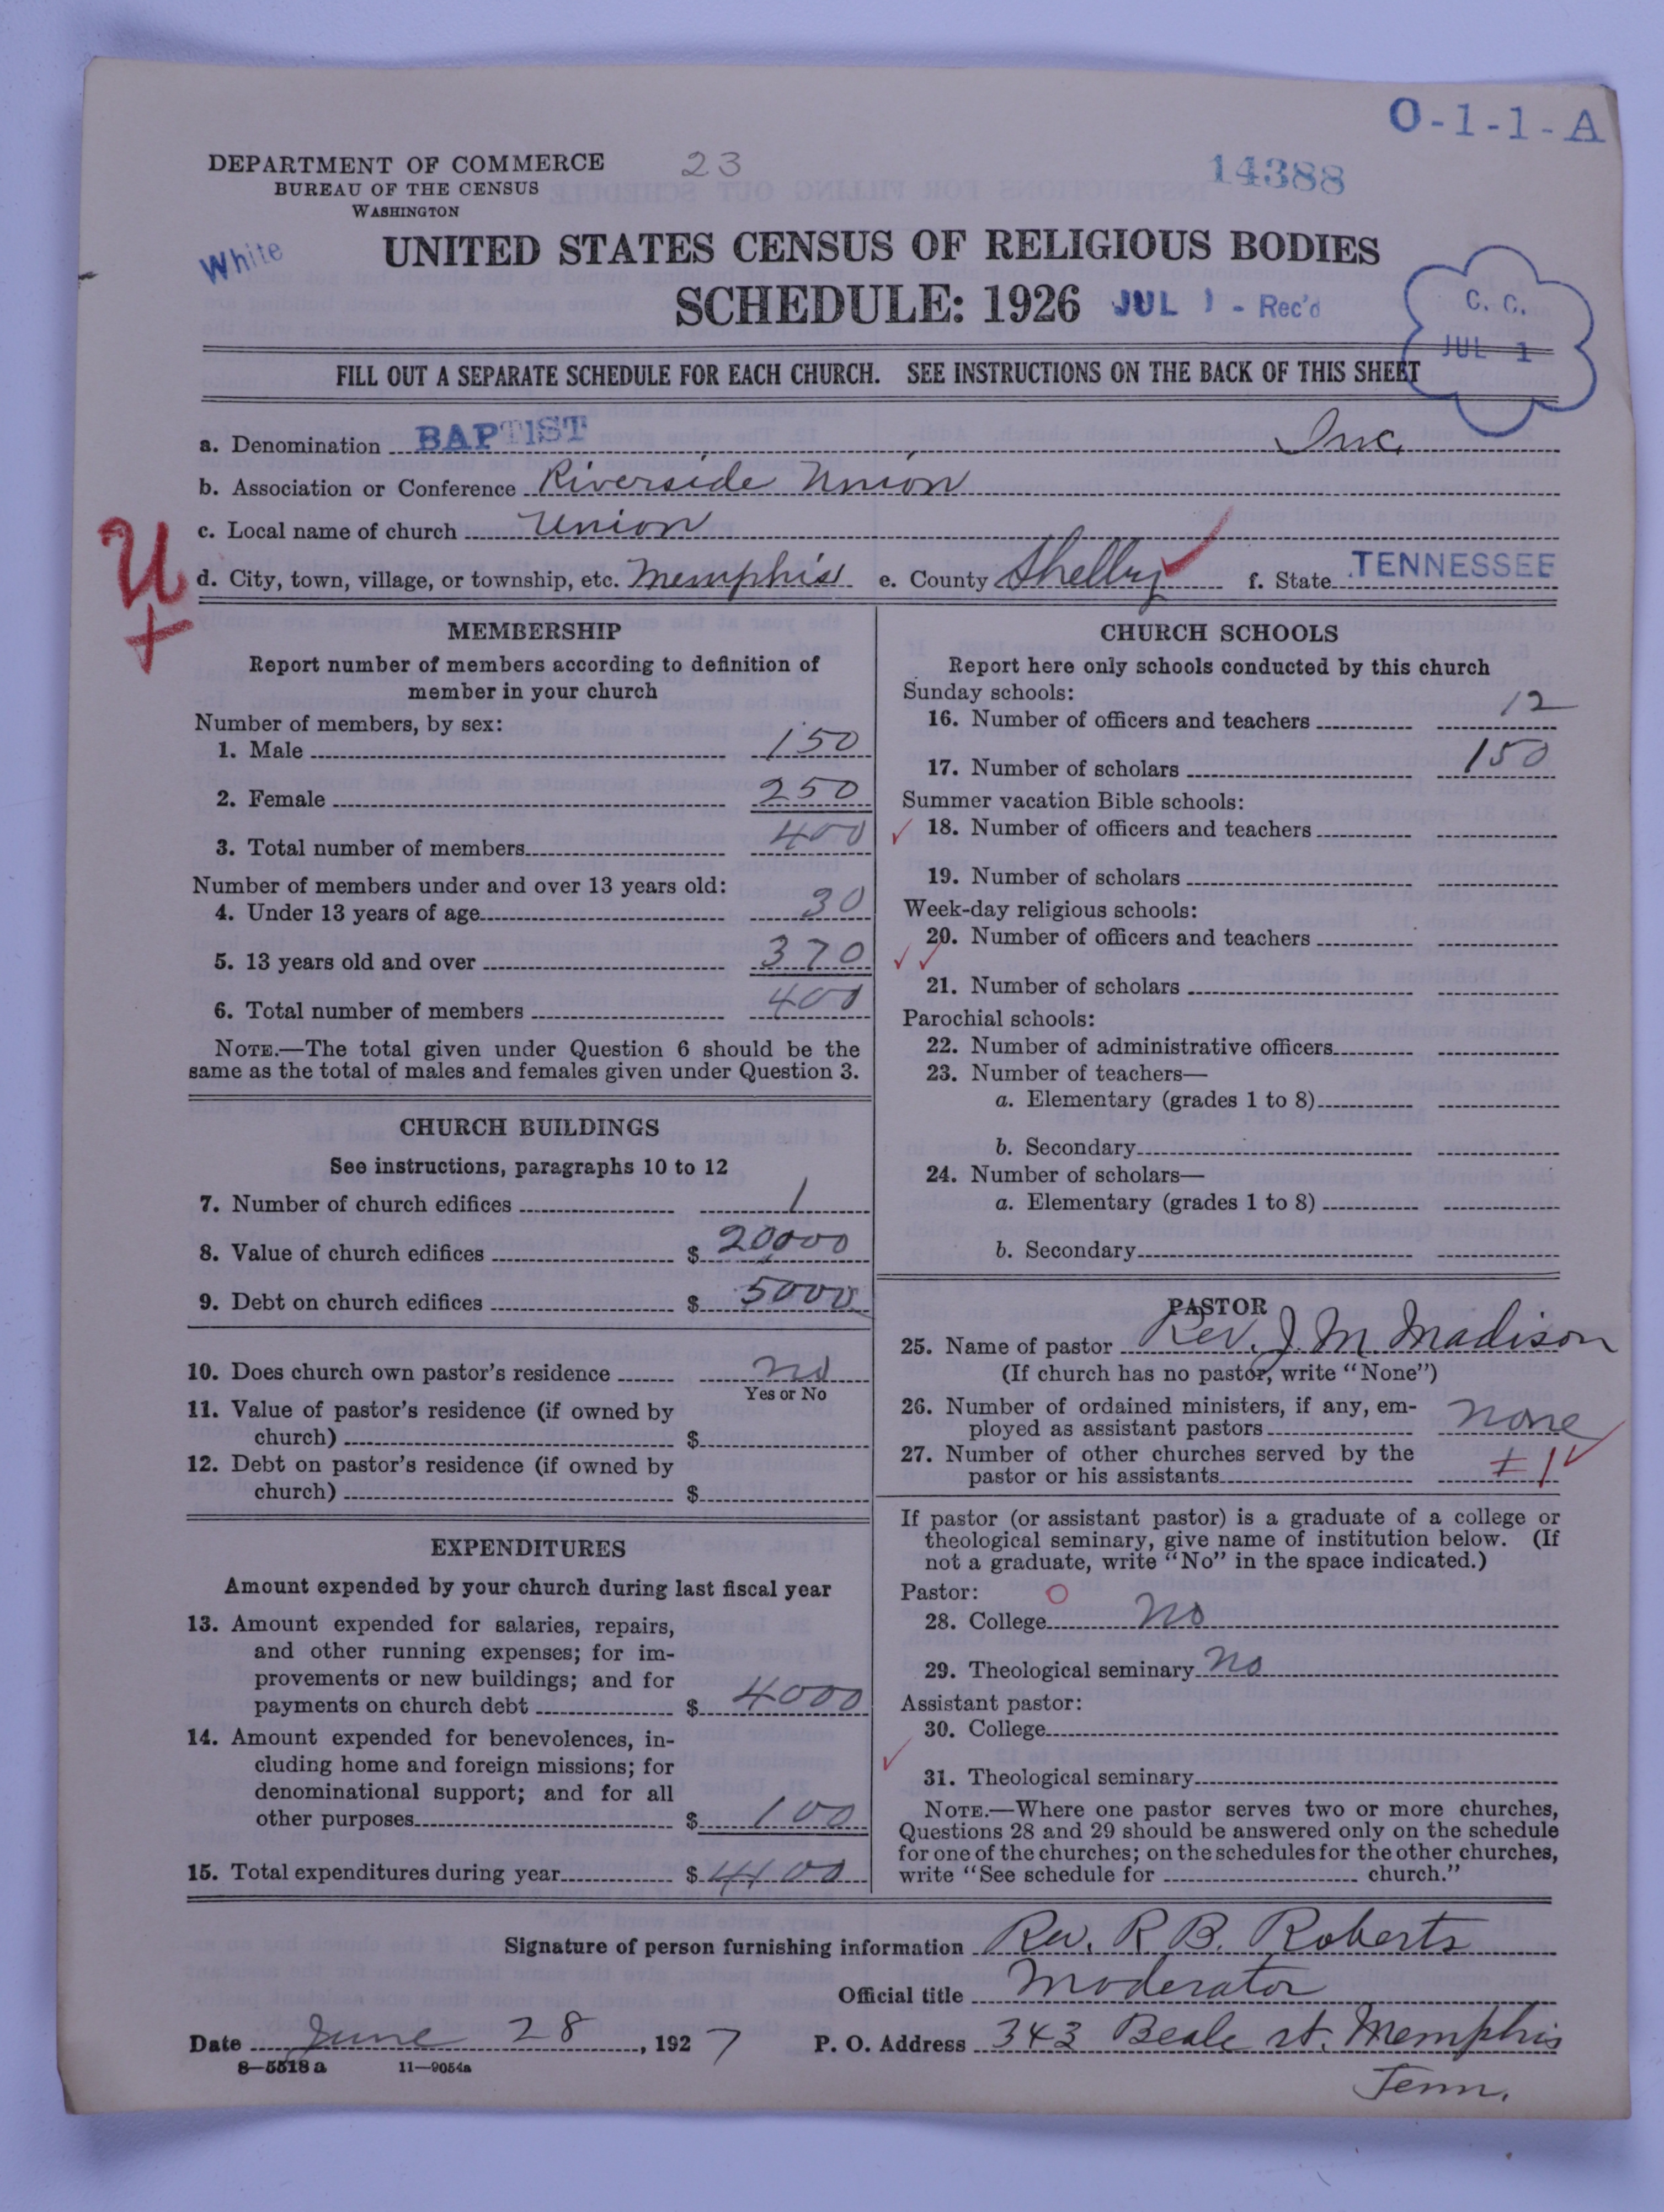 O-1-1-A
DEPARTMENT OF COMMERCE
BUREAU OF THE CENSUS
WASHINGTON
23
14388
White
UNITED STATES CENSUS OF RELIGIOUS BODIES
SCHEDULE: 1926
JUL 1 - Rec'd
C. C.
JUL 1
FILL OUT A SEPARATE SCHEDULE FOR EACH CHURCH. SEE INSTRUCTIONS ON THE BACK OF THIS SHEET
a. Denomination BAPTIST Inc.
b. Association or Conference Riverside Union
c. Local name of church Union
U
+
d. City, town, village, or township, etc. Memphis e. County Shelby f. State TENNESSEE
MEMBERSHIP
Report number of members according to definition of
member in your church
Number of members, by sex:
1. Male 150
2. Female 250
3. Total number of members 400
Number of members under and over 13 years old:
4. Under 13 years of age 30
5. 13 years old and over 370
6. Total number of members 400
NOTE.—The total given under Question 6 should be the
same as the total of males and females given under Question 3.
CHURCH BUILDINGS
See instructions, paragraphs 10 to 12
7. Number of church edifices 1
8. Value of church edifices $ 20,000
9. Debt on church edifices $ 5000
10. Does church own pastor's residence no
Yes or No
11. Value of pastor's residence (if owned by
church) $
12. Debt on pastor's residence (if owned by
church) $
EXPENDITURES
Amount expended by your church during last fiscal year
13. Amount expended for salaries, repairs,
and other running expenses; for im-
provements or new buildings; and for
payments on church debt $ 4000
14. Amount expended for benevolences, in-
cluding home and foreign missions; for
denominational support; and for all
other purposes $ 100
15. Total expenditures during year $ 4100
CHURCH SCHOOLS
Report here only schools conducted by this church
Sunday schools:
16. Number of officers and teachers 12
17. Number of scholars 150
Summer vacation Bible schools:
18. Number of officers and teachers
19. Number of scholars
Week-day religious schools:
20. Number of officers and teachers
21. Number of scholars
Parochial schools:
22. Number of administrative officers
23. Number of teachers—
a. Elementary (grades 1 to 8)
b. Secondary
24. Number of scholars—
a. Elementary (grades 1 to 8)
b. Secondary
PASTOR
25. Name of pastor Rev. J. M. Madison
(If church has no pastor, write "None")
26. Number of ordained ministers, if any, em-
ployed as assistant pastors none
27. Number of other churches served by the
pastor or his assistants 1
If pastor (or assistant pastor) is a graduate of a college or
theological seminary, give name of institution below. (If
not a graduate, write "No" in the space indicated.)
Pastor: O
28. College no
29. Theological seminary no
Assistant pastor:
30. College
31. Theological seminary
NOTE.—Where one pastor serves two or more churches,
Questions 28 and 29 should be answered only on the schedule
for one of the churches; on the schedules for the other churches,
write "See schedule for church."
Signature of person furnishing information Rev. R B. Roberts
Official title Moderator
Date June 28, 1927 P. O. Address 343 Beale st. Memphis
8-5518a 11-9054a Tenn.